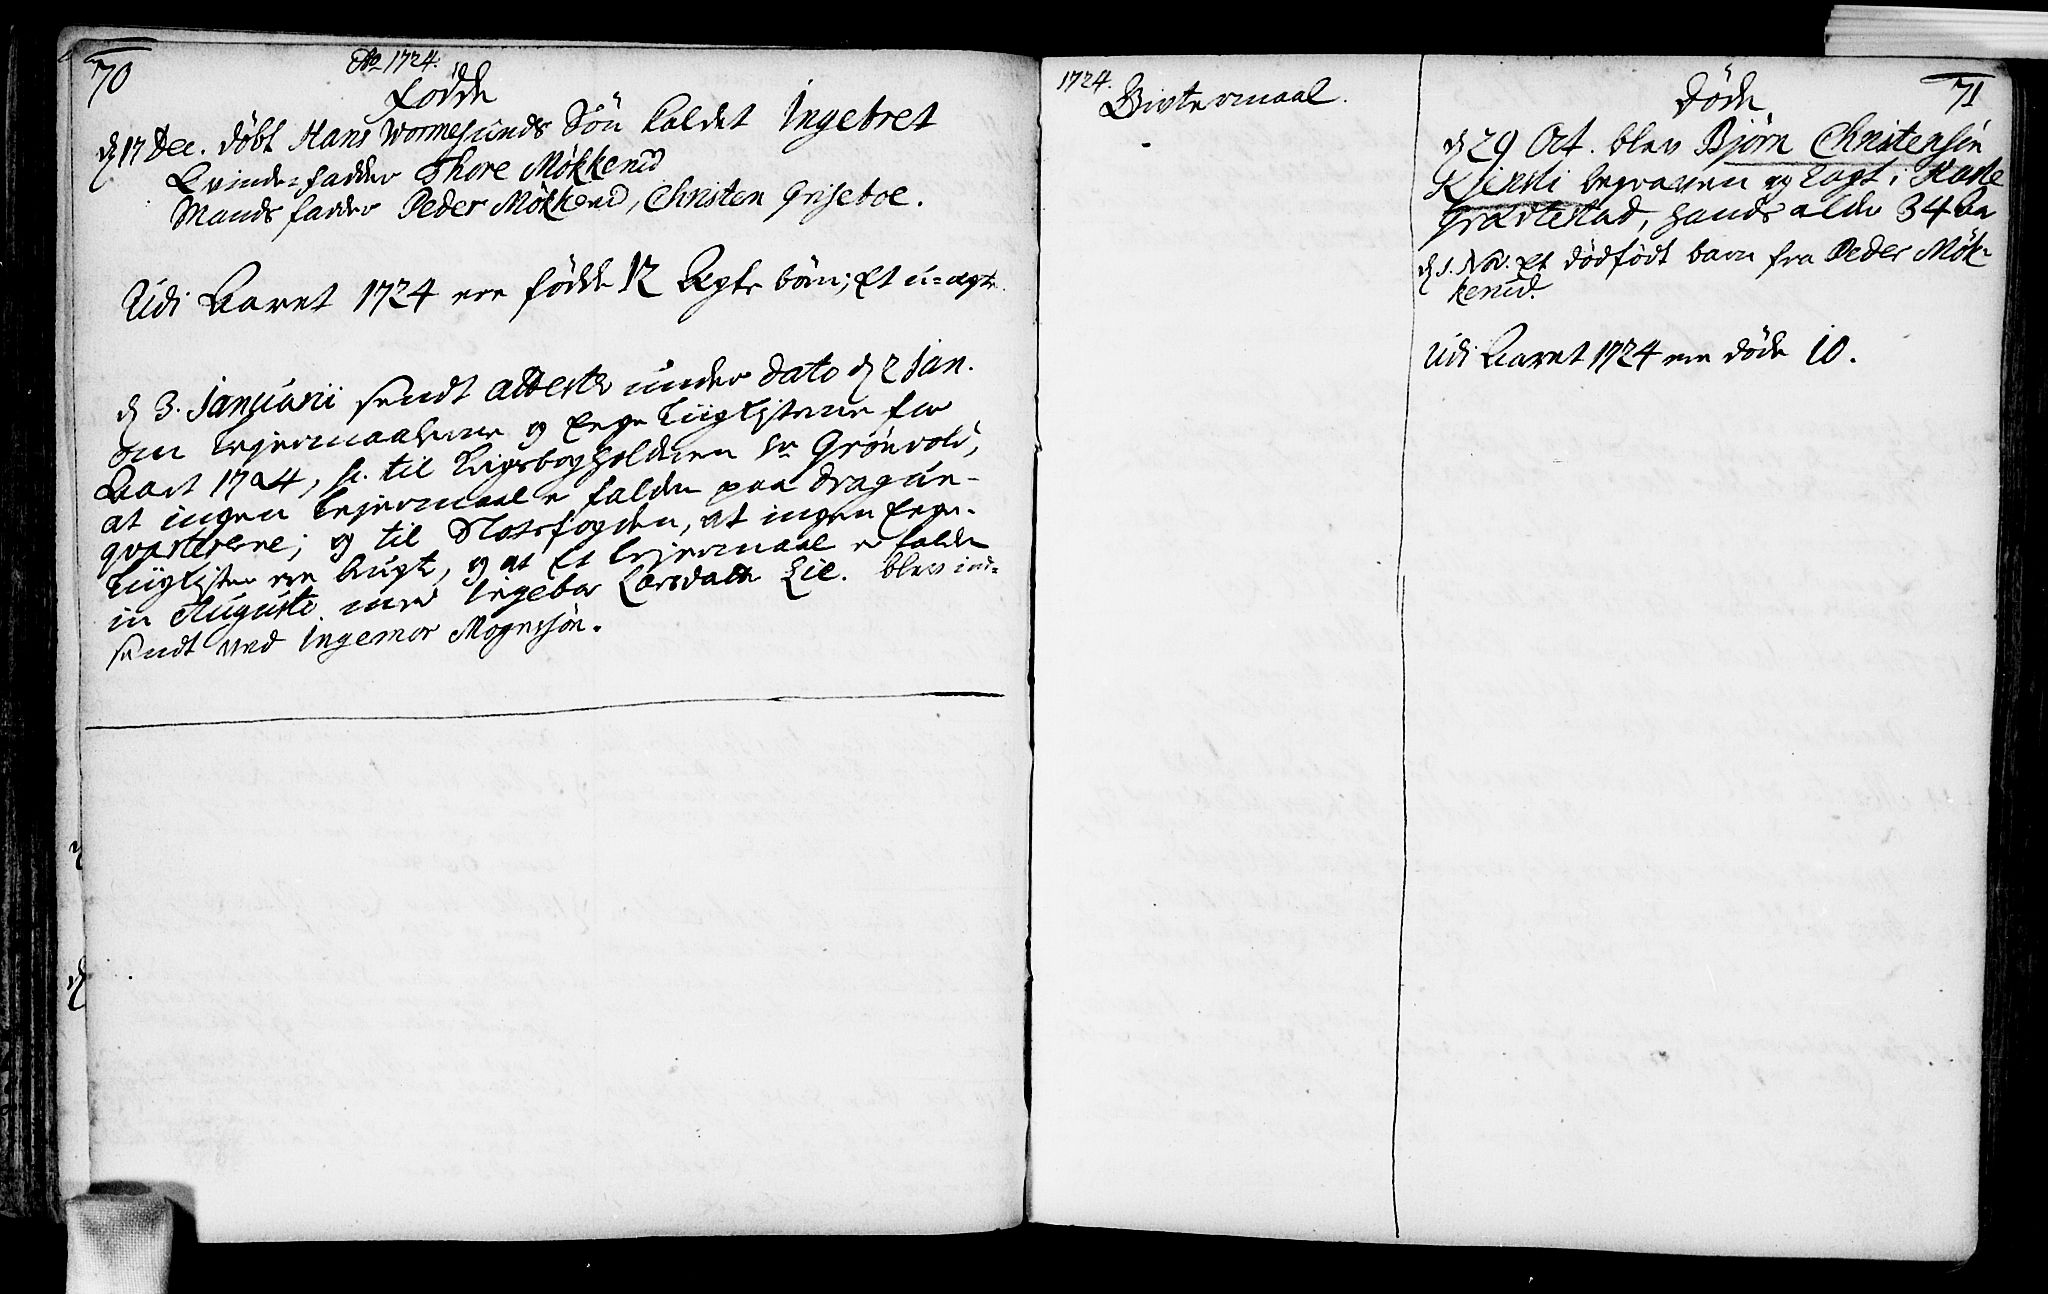 70
Ao 1724.
Födde
d 17 Dec. döbt Hans Wormesunds Sön kaldet Ingebret
Kvinde-fadder Thore Mökkerud
Mands fadder Peder Mökkerud, Christen Griseboe.
Udi Aaret 1724 ere födde 12 Ægte börn; Et u-ægte.
d 3. Januarii sendt attester under dato d 2 Jan.
om Lejermaalene og for
Aaret 1724, sc. til Krigsbogholderen Sr Grönvold,
at ingen Lejermaal er falden paa dragun-
qvartererne; og til Slotsfogden, at ingen
ere brugt, og at Et Lejermaal er falden
in Augusto med Ingebor Larsdatter Lie. blev ind-
sendt ved Ingemor Mognssön.
1724.
Givtermaal.
71
Döde
d 29 Oct. blev Björn Christensön
begraven og lagt i
Gravsted, hands alder 34 Aar
d 1. Nov. Et dödfödt barn fra Peder Mök-
kerud.
Udi Aaret 1724 ere döde 10.